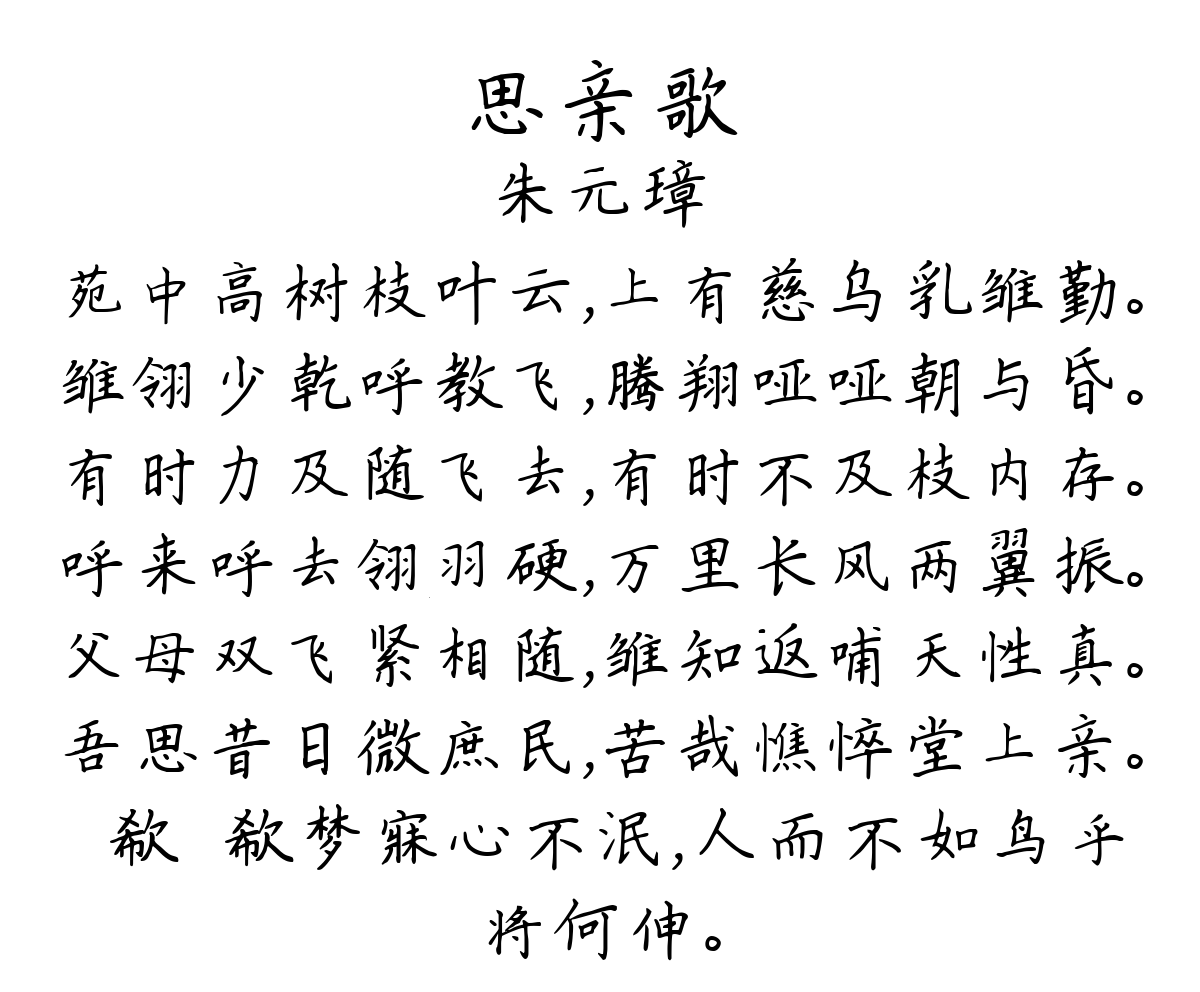 思亲歌
朱元璋
苑中高树枝叶云,上有慈乌乳雏勤。
雏翎少乾呼教飞,腾翔哑哑朝与昏。
有时力及随飞去,有时不及枝内存。
呼来呼去翎羽硬,万里长风两翼振。
父母双飞紧相随,雏知返哺天性真。
吾思昔日微庶民,苦哉憔悴堂上亲。
欷 欷梦寐心不泯,人而不如鸟乎
将何伸。